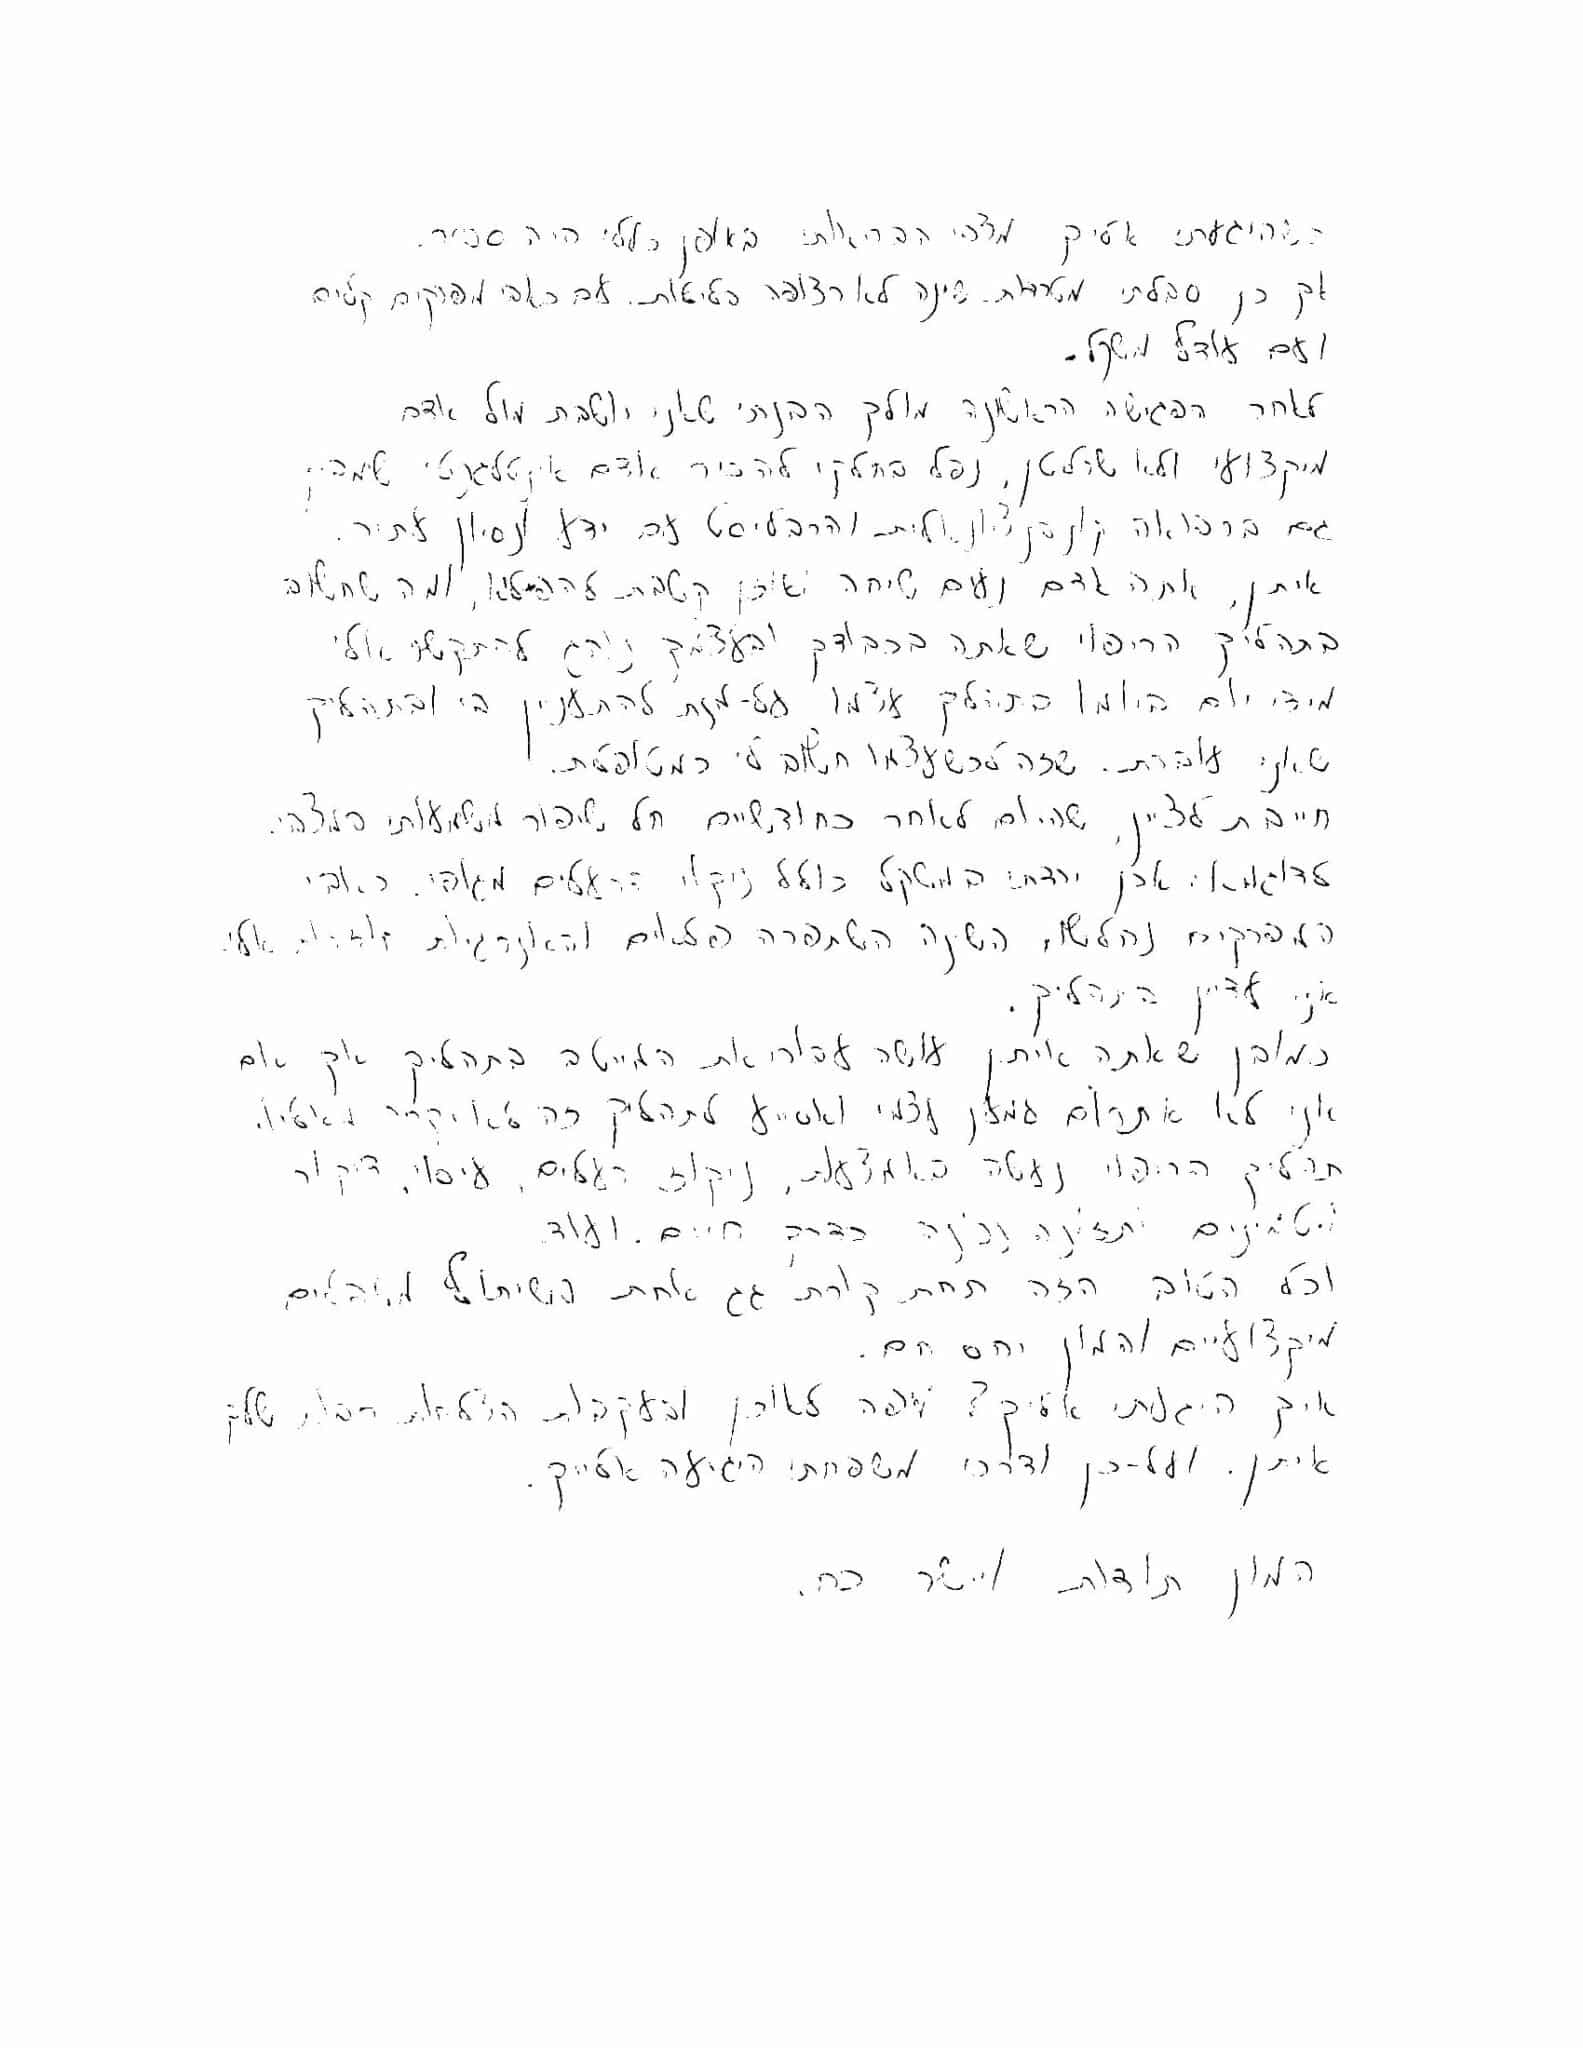 כשהיגעתי אליך מצבי הבריאותי באופן כללי היה סביר.
אך כן סבלתי מטרדות. שינה לא רצופה בלילות. עם כאבי מפרקים קלים
ועם עודף משקל.
לאחר הפגישה הראשונה מולך הבנתי שאני יושבת מול אדם
מיקצועי ולא שרלטן, נפל בחלקי להכיר אדם אינטלגנטי שמבין
גם ברפואה קונבנציונאלית והרבליסט עם ידע ונסיון עתיר.
איתן, אתה אדם נעים שיחה ואוזן קשבת להפליא, ומה שחשוב
בתהליך הריפוי שאתה בכבודך ובעצמך נוהג להתקשר אלי
מידי יום ביומו בתהליך עצמו על-מנת להתעניין בי ובתהליך
שאני עוברת. שזה לכשעצמו חשוב לי כמטופלת.
חייבת לציין, שהיום לאחר כחודשיים חל שיפור משמעותי במצבי.
לדוגמא: אכן ירדתי במשקל כולל ניקוי הרעלים מגופי. כאבי
המפרקים נחלשו, השינה השתפרה פלאים והאנרגיות חוזרות אלי.
אני עדיין בתהליך.
כמובן שאתה איתן עושה עבורי את המייטב בתהליך אך אם
אני לא אתרום למען עצמי ואסייע לתהליך זה לא יקרה מאליו.
תהליך הריפוי נעשה באמצעות, ניקוז רעלים, עיסוי, דיקור
ויטמינים ותזונה נכונה כדרך חיים. ועוד
וכל הטוב הזה תחת קורת גג אחת בשיתוף מטפלים
מיקצועיים והמון יחס חם.
איך היגעתי אליך? מפה לאוזן ובעקבות הצלחות רבות שלך
איתן. ועל-כן ודרכי משפחתי היגיעה אלייך.
המון תודות ויישר כח.